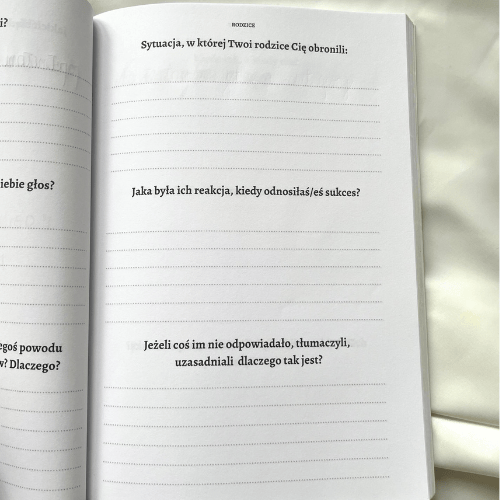 i?
iebie głos?
egoś powodu
w? Dlaczego?
RODZICE
Sytuacja, w której Twoi rodzice Cię obronili:
Jaka była ich reakcja, kiedy odnosiłaś/eś sukces?
Jeżeli coś im nie odpowiadało, tłumaczyli,
uzasadniali dlaczego tak jest?